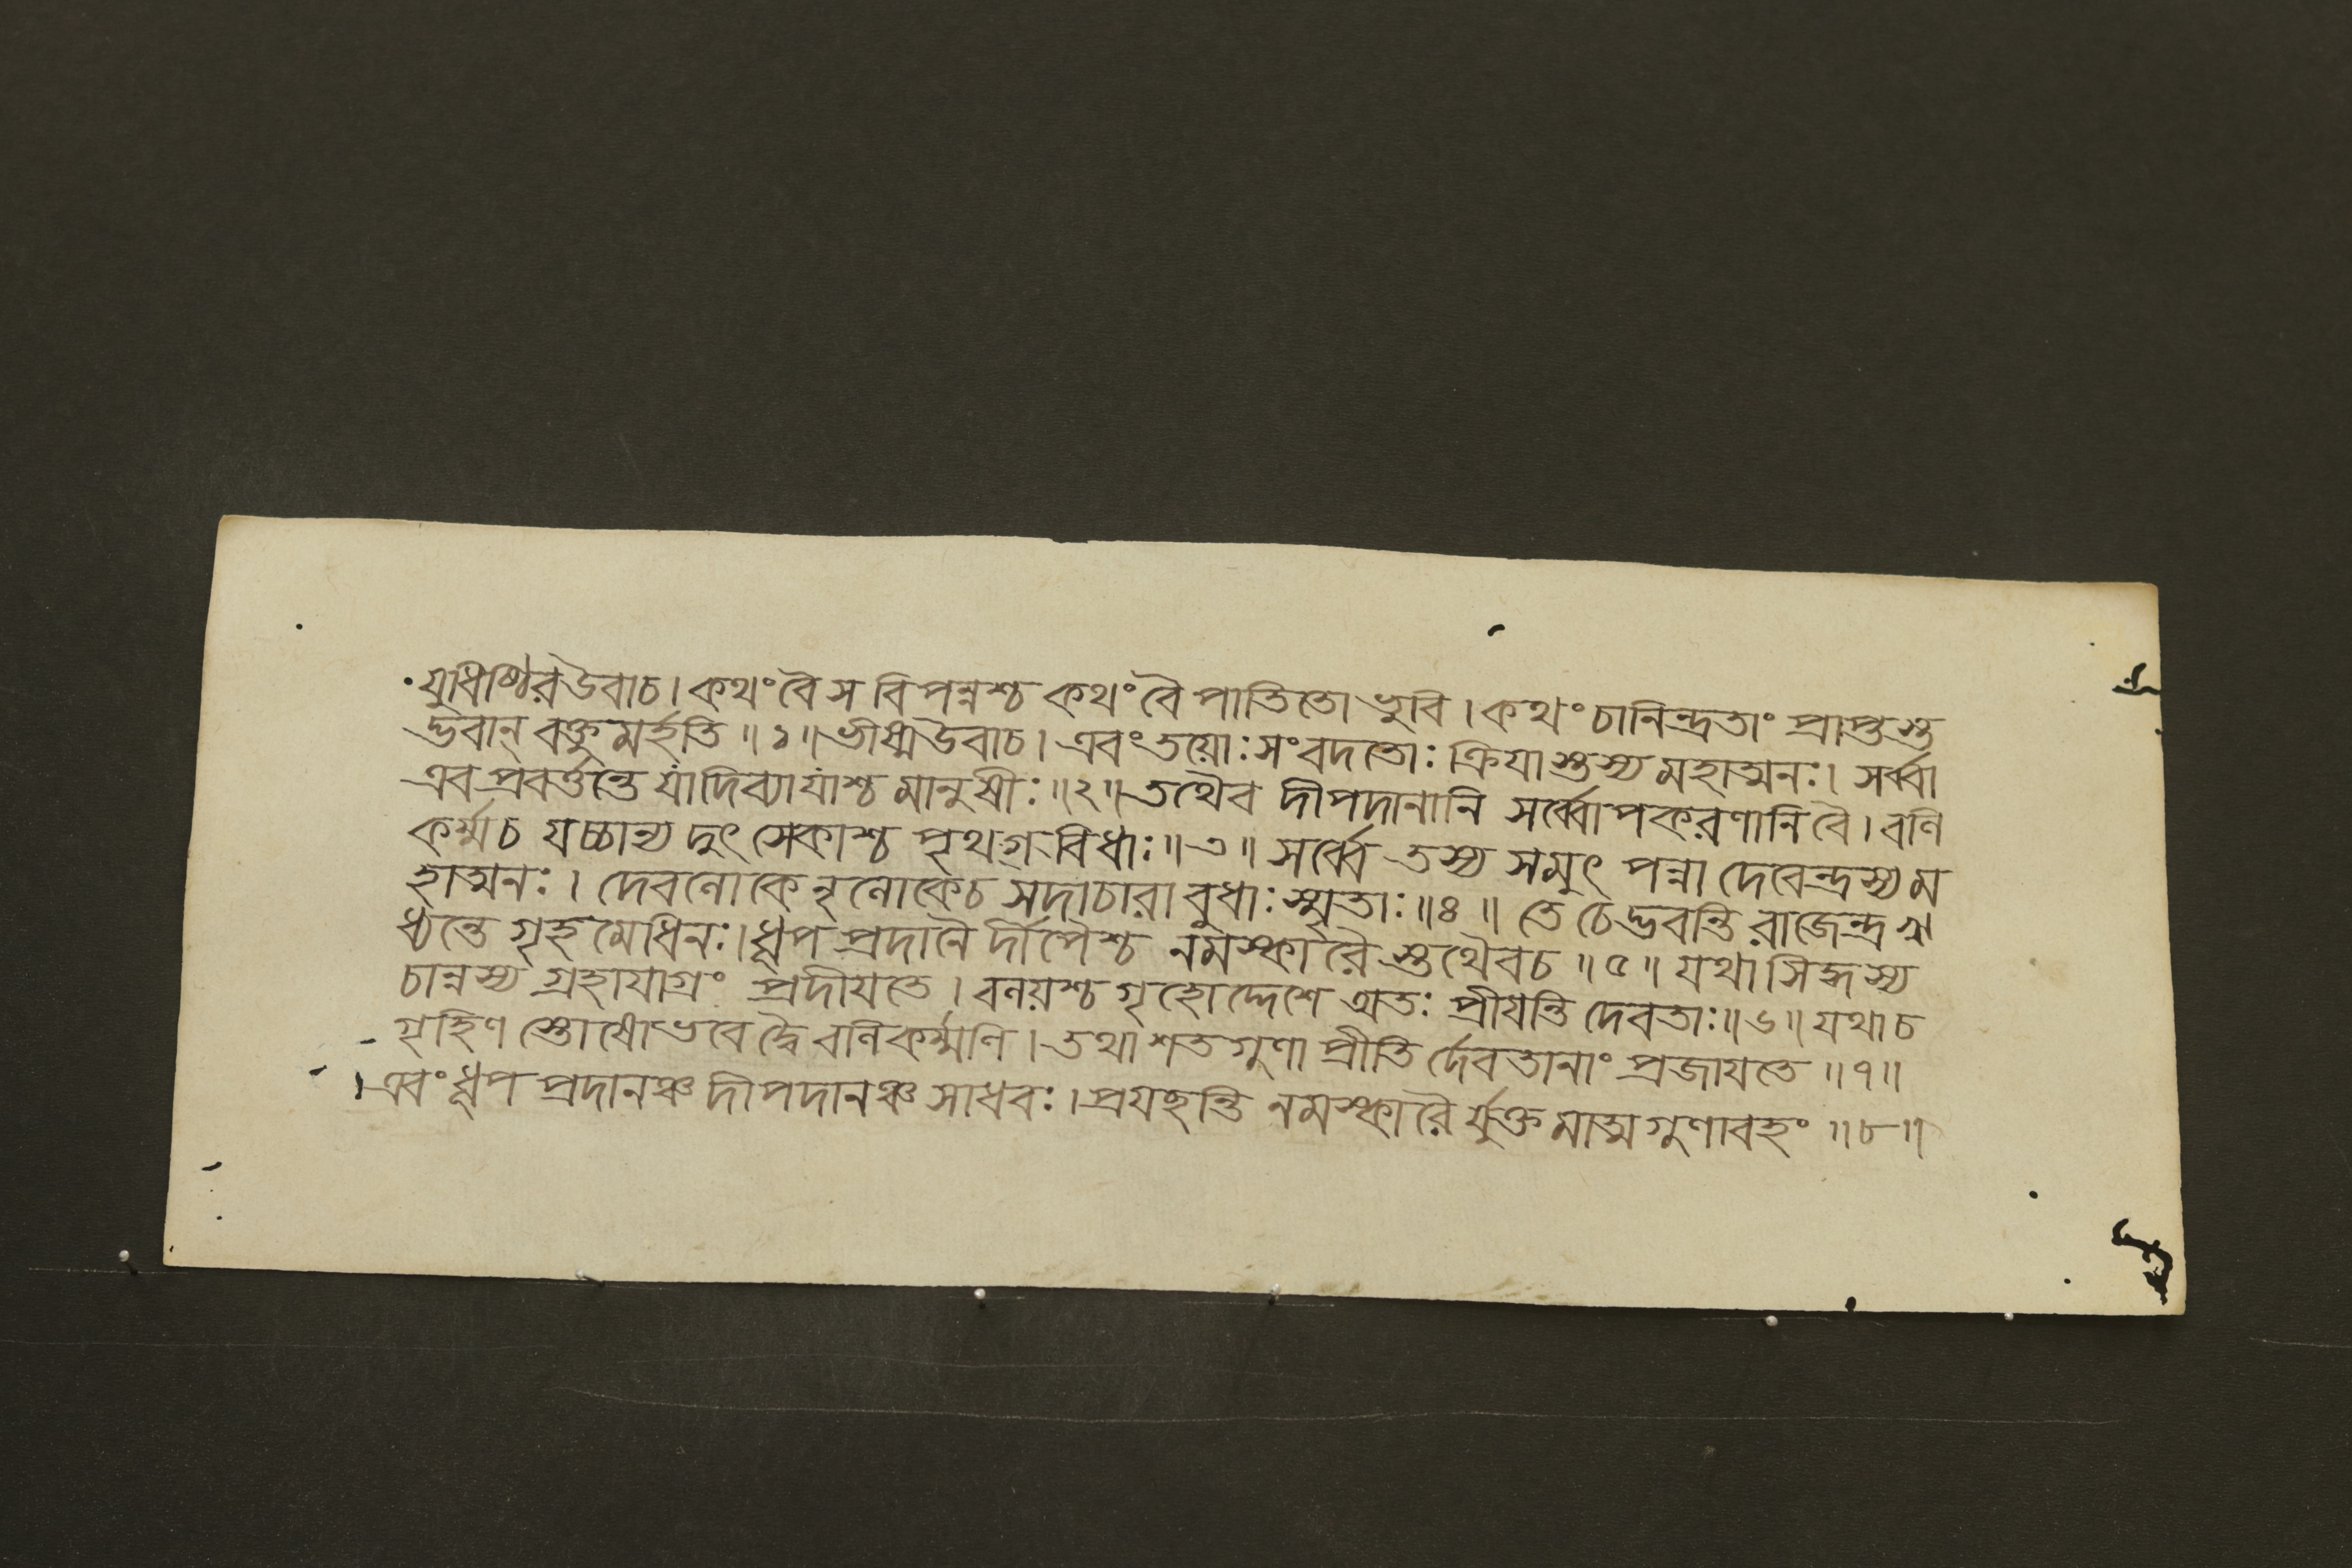 যুধিষ্ঠিরউবাচ। কথং বৈ স বিপন্নশ্চ কথং বৈ পাতিতো ভুবি। কথং চানিন্দ্রতাং প্রাপ্তস্ত
দ্ভবান্ বক্তুমর্হতি ॥১॥ ভীষ্মউবাচ। এবং তয়োঃ সংবদতোঃ ক্রিযাস্তস্য মহাত্মনঃ। সর্ব্বা
এব প্রবর্ত্তন্তে যাং দিব্যা যাংশ্চ মানুষীঃ ॥২॥ তথৈব দীপদানানি সর্ব্বোপকরণানি বৈ। বলি
কর্ম্মচ যচ্চান্য দুৎসেকাশ্চ পৃথগ্ বিধাঃ ॥৩॥ সর্ব্বে তস্য সমুৎ পন্না দেবেন্দ্রস্য ম
হাত্মনঃ। দেবলোকে নৃলোকেচ সদাচারা বুধাঃ স্মৃতাঃ ॥৪॥ তে চেদ্ভবন্তি রাজেন্দ্র ঋ
ধ্যন্তে গৃহমেধিনঃ। ধূপ প্রদানৈ র্দীপৈশ্চ নমস্কারৈ স্তথৈবচ ॥৫॥ যথা সিদ্ধস্য
চান্নস্য গ্রহাযাগ্রং প্রদীযতে। বলয়শ্চ গৃহোদ্দেশে অতঃ প্রীযন্তি দেবতাঃ ॥৬॥ যথা চ
গৃহিণ স্তোষো ভবেদ্বৈ বলিকর্ম্মণি। তথা শতগুণা প্রীতি র্দেবতানাং প্রজাযতে ॥৭॥
এবং ধূপ প্রদানঞ্চ দীপদানঞ্চ সাধবঃ। প্রযচ্ছন্তি নমস্কারৈ র্যুক্ত মাত্মগুণাবহং ॥৮॥